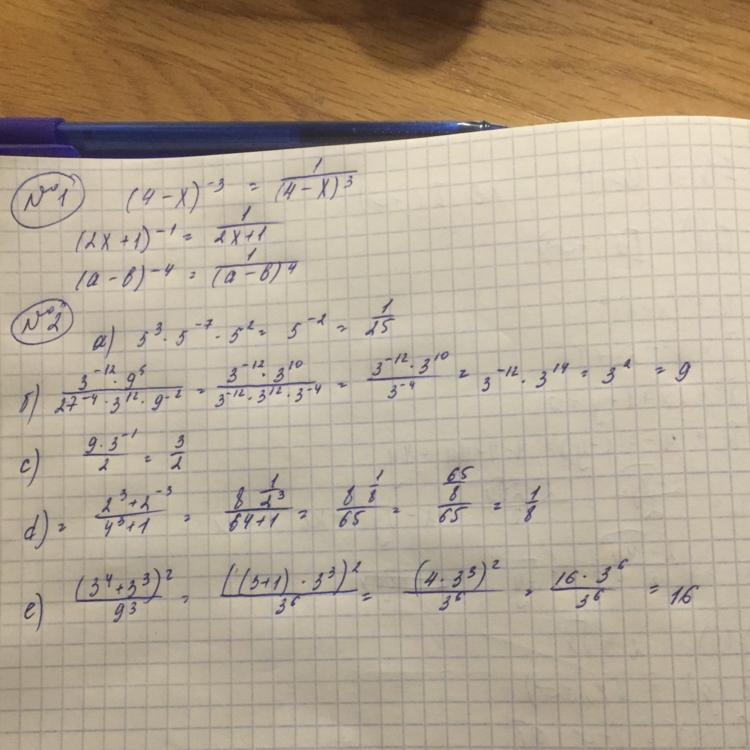 №1 (4-x)^{-3} = \frac{1}{(4-x)^3}
(2x+1)^{-1} = \frac{1}{2x+1}
(a-b)^{-4} = \frac{1}{(a-b)^4}
№2 a) 5^3 \cdot 5^{-7} \cdot 5^2 = 5^{-2} = \frac{1}{25}
б) \frac{3^{-12} \cdot 9^5}{27^{-4} \cdot 3^{12} \cdot 9^{-2}} = \frac{3^{-12} \cdot 3^{10}}{3^{-12} \cdot 3^{12} \cdot 3^{-4}} = \frac{3^{-12} \cdot 3^{10}}{3^{-4}} = 3^{-12} \cdot 3^{14} = 3^2 = 9
c) \frac{9 \cdot 3^{-1}}{2} = \frac{3}{2}
d) = \frac{2^3+2^{-3}}{4^3+1} = \frac{8 \frac{1}{2^3}}{64+1} = \frac{8 \frac{1}{8}}{65} = \frac{\frac{65}{8}}{65} = \frac{1}{8}
e) \frac{(3^4+3^3)^2}{9^3} = \frac{((3+1) \cdot 3^3)^2}{3^6} = \frac{(4 \cdot 3^3)^2}{3^6} = \frac{16 \cdot 3^6}{3^6} = 16